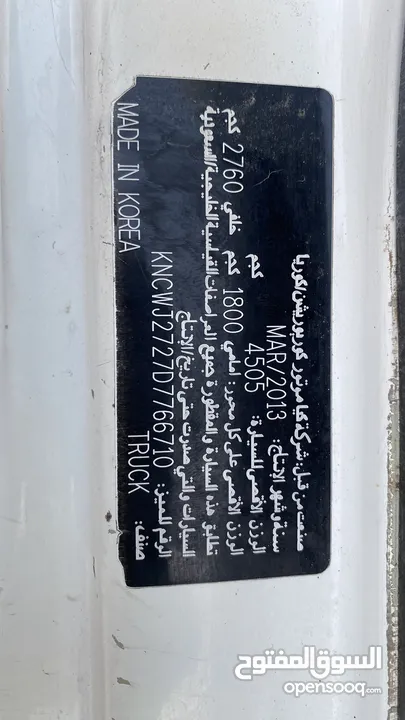 صنعت من قبل: شركة كيا موتور كوربوريشن/كوريا
سنة وشهر الإنتاج: MAR/2013
الوزن الأقصى للسيارة: 4505 كجم
الوزن الأقصى على كل محور: امامي 1800 كجم خلفي 2760 كجم
تطابق هذه السيارة والمقطورة جميع المراصفات القياسية الخليجية/السعودية
السيارات والتي صدرت حتى تاريخ/الإنتاج
الرقم المميز: KNCWJ2727D7766710
صنف: TRUCK
MADE IN KOREA
السوق المفتوح
opensooq.com